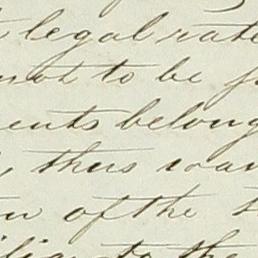 legal rate
not to be
ents belong
thus
of the
to the